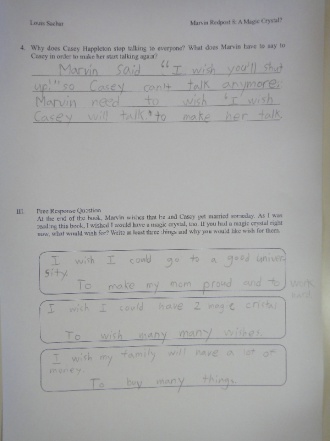 Louis Sachar Marvin Redpost 8: A Magic Crystal?
4. Why does Casey Happleton stop talking to everyone? What does Marvin have to say to
Casey in order to make her start talking again?
Marvin said "I wish you'll shut
up!" so Casey can't talk anymore.
Marvin need to wish "I wish
Casey will talk." to make her talk.
III. Post Response Question
At the end of the book, Marvin wishes that he and Casey get married someday. As I was
reading this book, I wished I would have a magic crystal, too. If you had a magic crystal right
now, what would wish for? Write at least three things and why you would like wish for them.
I wish I could go to a good univer
sity.
To make my mom proud and to work
hard.
I wish I could have 1 mage cristal
To wish many many wishes.
I wish my family will have a lot of
money.
To buy many things.